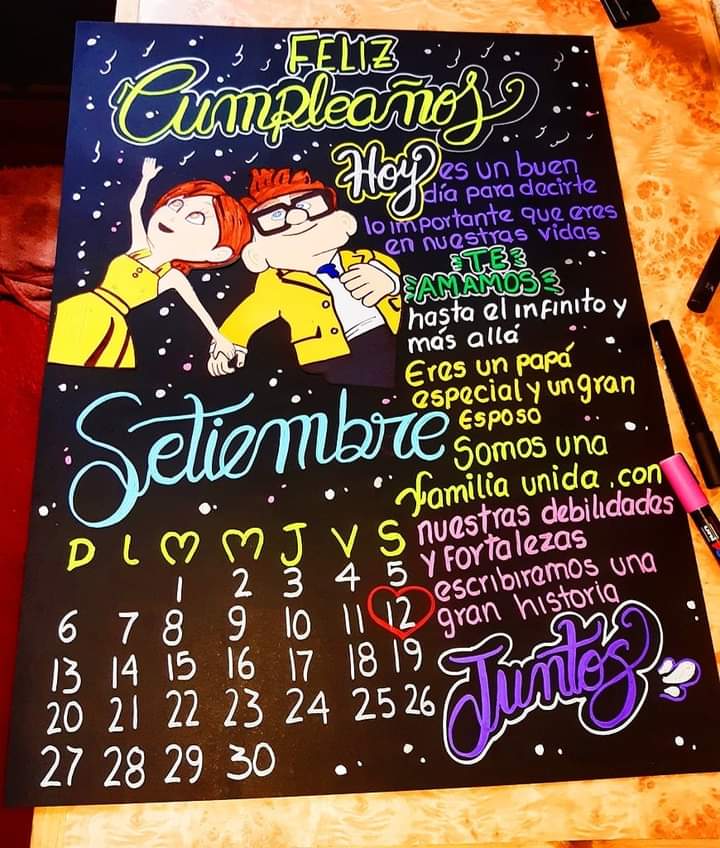 FELIZ
Cumpleaños
Hoy es un buen
día para decirte
lo importante que eres
en nuestras vidas
TE
AMAMOS
hasta el infinito y
más allá
Eres un papá
especial y un gran
Esposo
Somos una
familia unida, con
nuestras debilidades
y fortalezas
escribiremos una
gran historia
Juntos
Setiembre
D L M M J V S
1 2 3 4 5
6 7 8 9 10 11 12
13 14 15 16 17 18 19
20 21 22 23 24 25 26
27 28 29 30